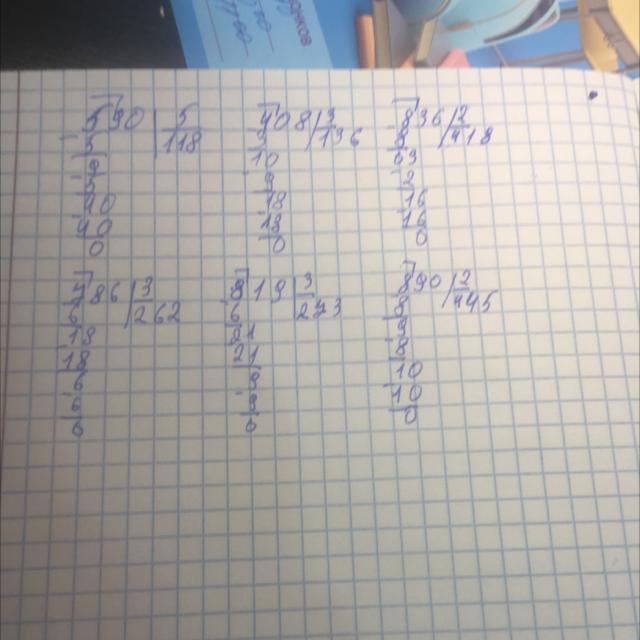 590 | 5
5 118
9
5
40
40
0
408 | 3
3 136
10
9
18
18
0
836 | 2
8 418
03
2
16
16
0
786 | 3
6 262
18
18
6
6
0
819 | 3
6 273
21
21
9
9
0
890 | 2
8 445
9
8
10
10
0